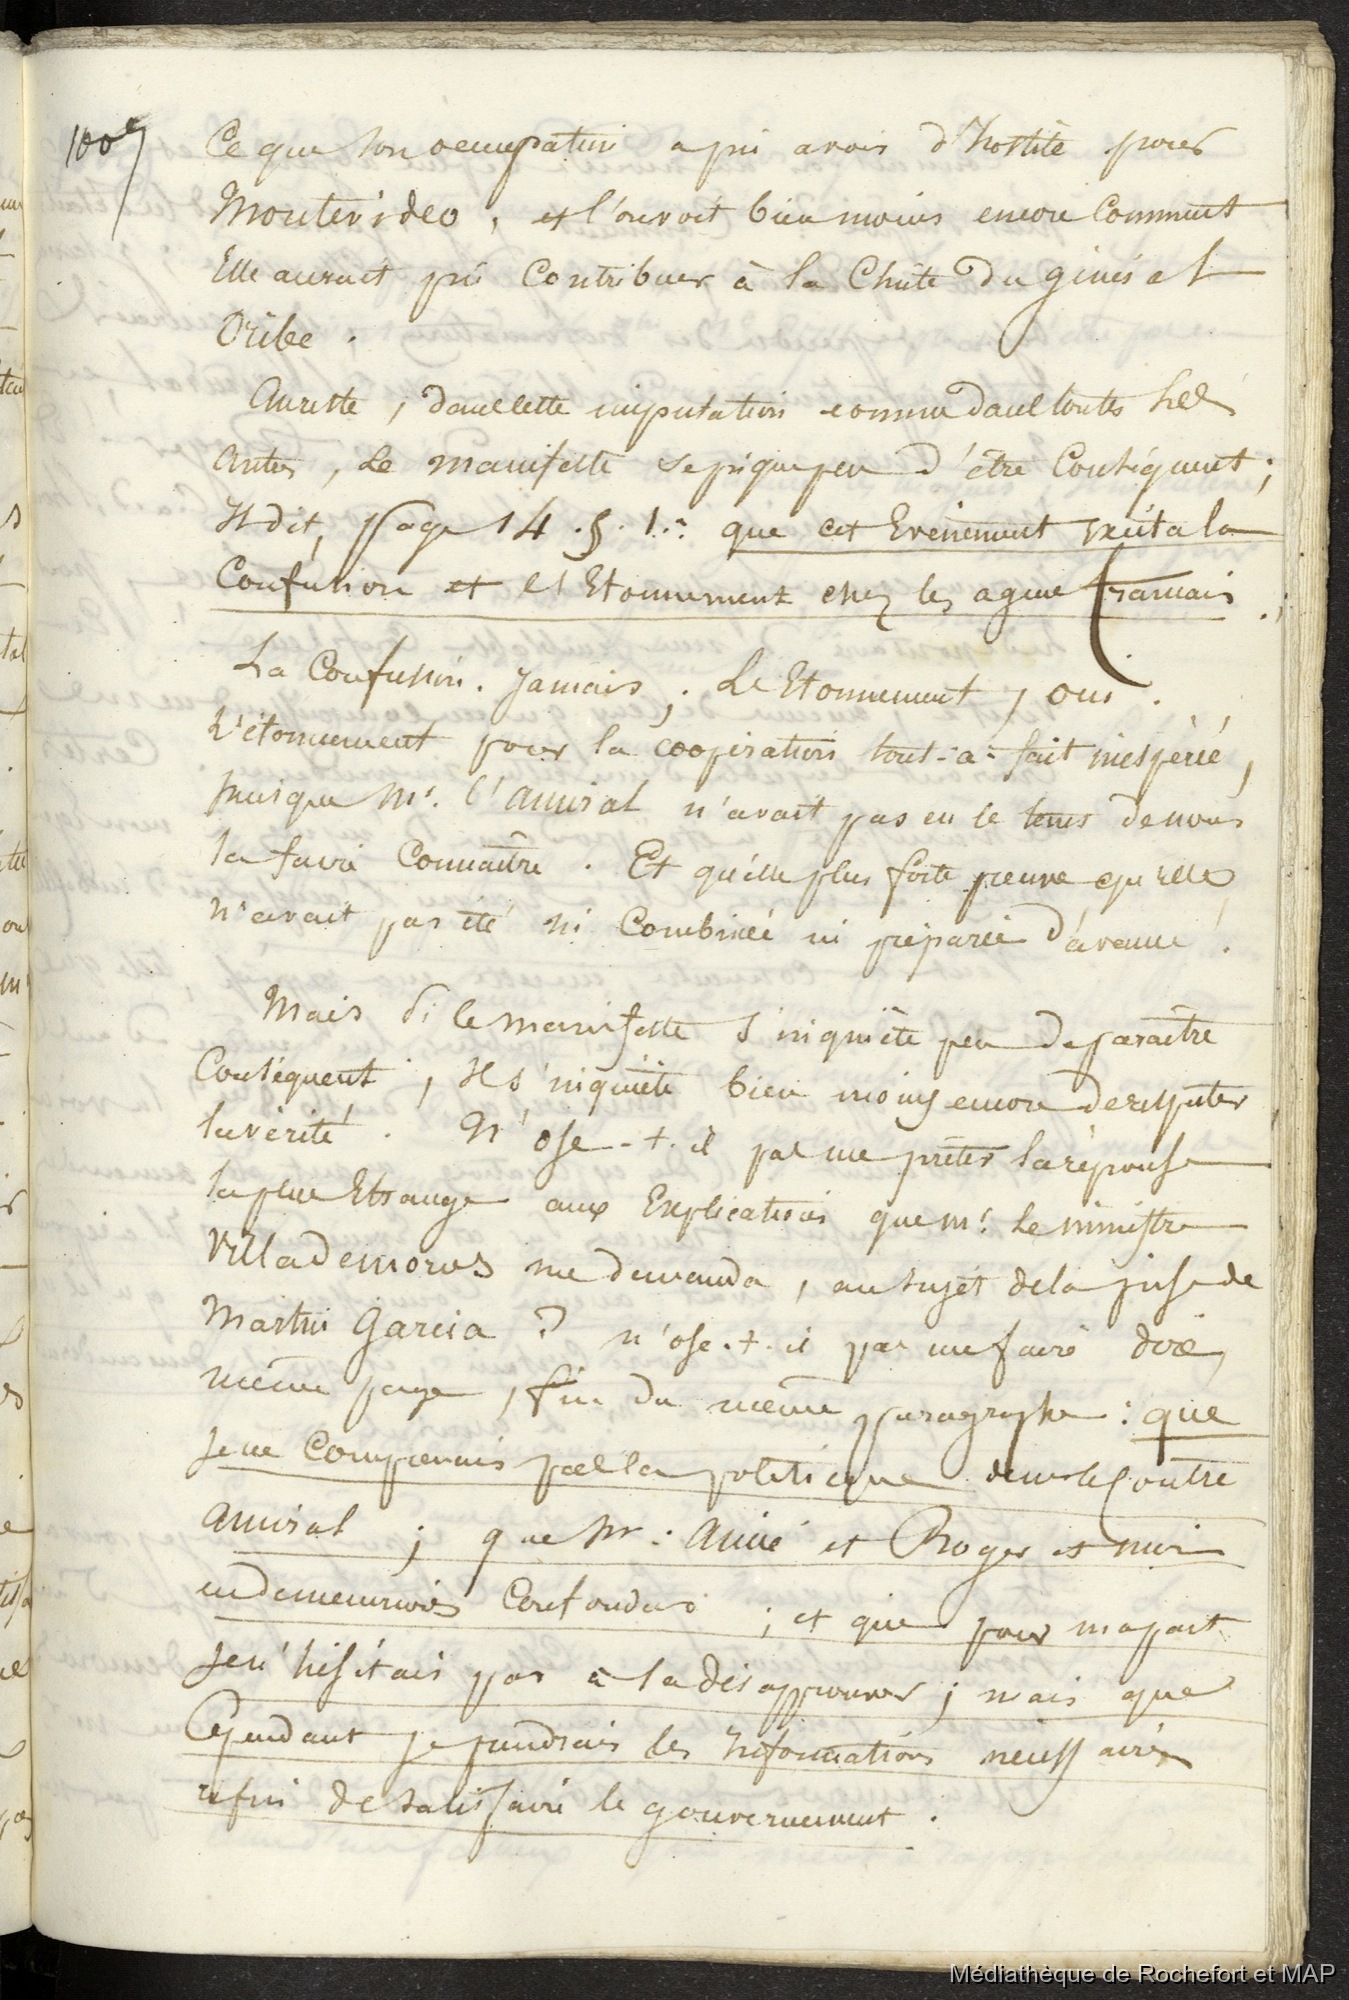 1009
Ce que son occupation a pû avoir d'hostile pour
Montevideo, et l'on voit bien moins encore Comment
Elle aurait pû Contribuer à la Chûte du général
Oribe.
Aureste, dans cette imputation comme dans toutes les
autres, le manifeste se pique peu d'être Conséquent;
Il dit, page 14. §. 1.er que cet Evènement excita la
Confusion et l'Etonnement chez les agens français.
La Confusion. Jamais; L'Etonnement, oui.
L'étonnement pour la coopération tout-a-fait inespérée,
puisque Mr. l'amiral n'avait pas eu le tems de nous
la faire Connaître. Et quelle plus forte preuve qu'elle
n'avait pas été ni Combinée ni préparée d'avance!
Mais si le manifeste s'inquiète peu de paraître
Conséquent, Il s'inquiète bien moins encore de respecter
la vérité. N'ose-t-il pas me prêter la réponse
la plus Etrange aux Explications que Mr. Le ministre
Villademoros me demanda, au sujet de la prise de
Martin Garcia? n'ose-t-il pas me faire dire,
même page, fin du même paragraphe: que
Je ne Comprenais pas la politique du Contre
amiral; que Mr. Aimé et Roger et moi
en demeurions Confondus; et que pour ma part
Je n'hésitais pas à la désapprouver; mais que
Cependant je prendrais les Informations nécessaires
afin de satisfaire le gouvernement.
Médiathèque de Rochefort et MAP